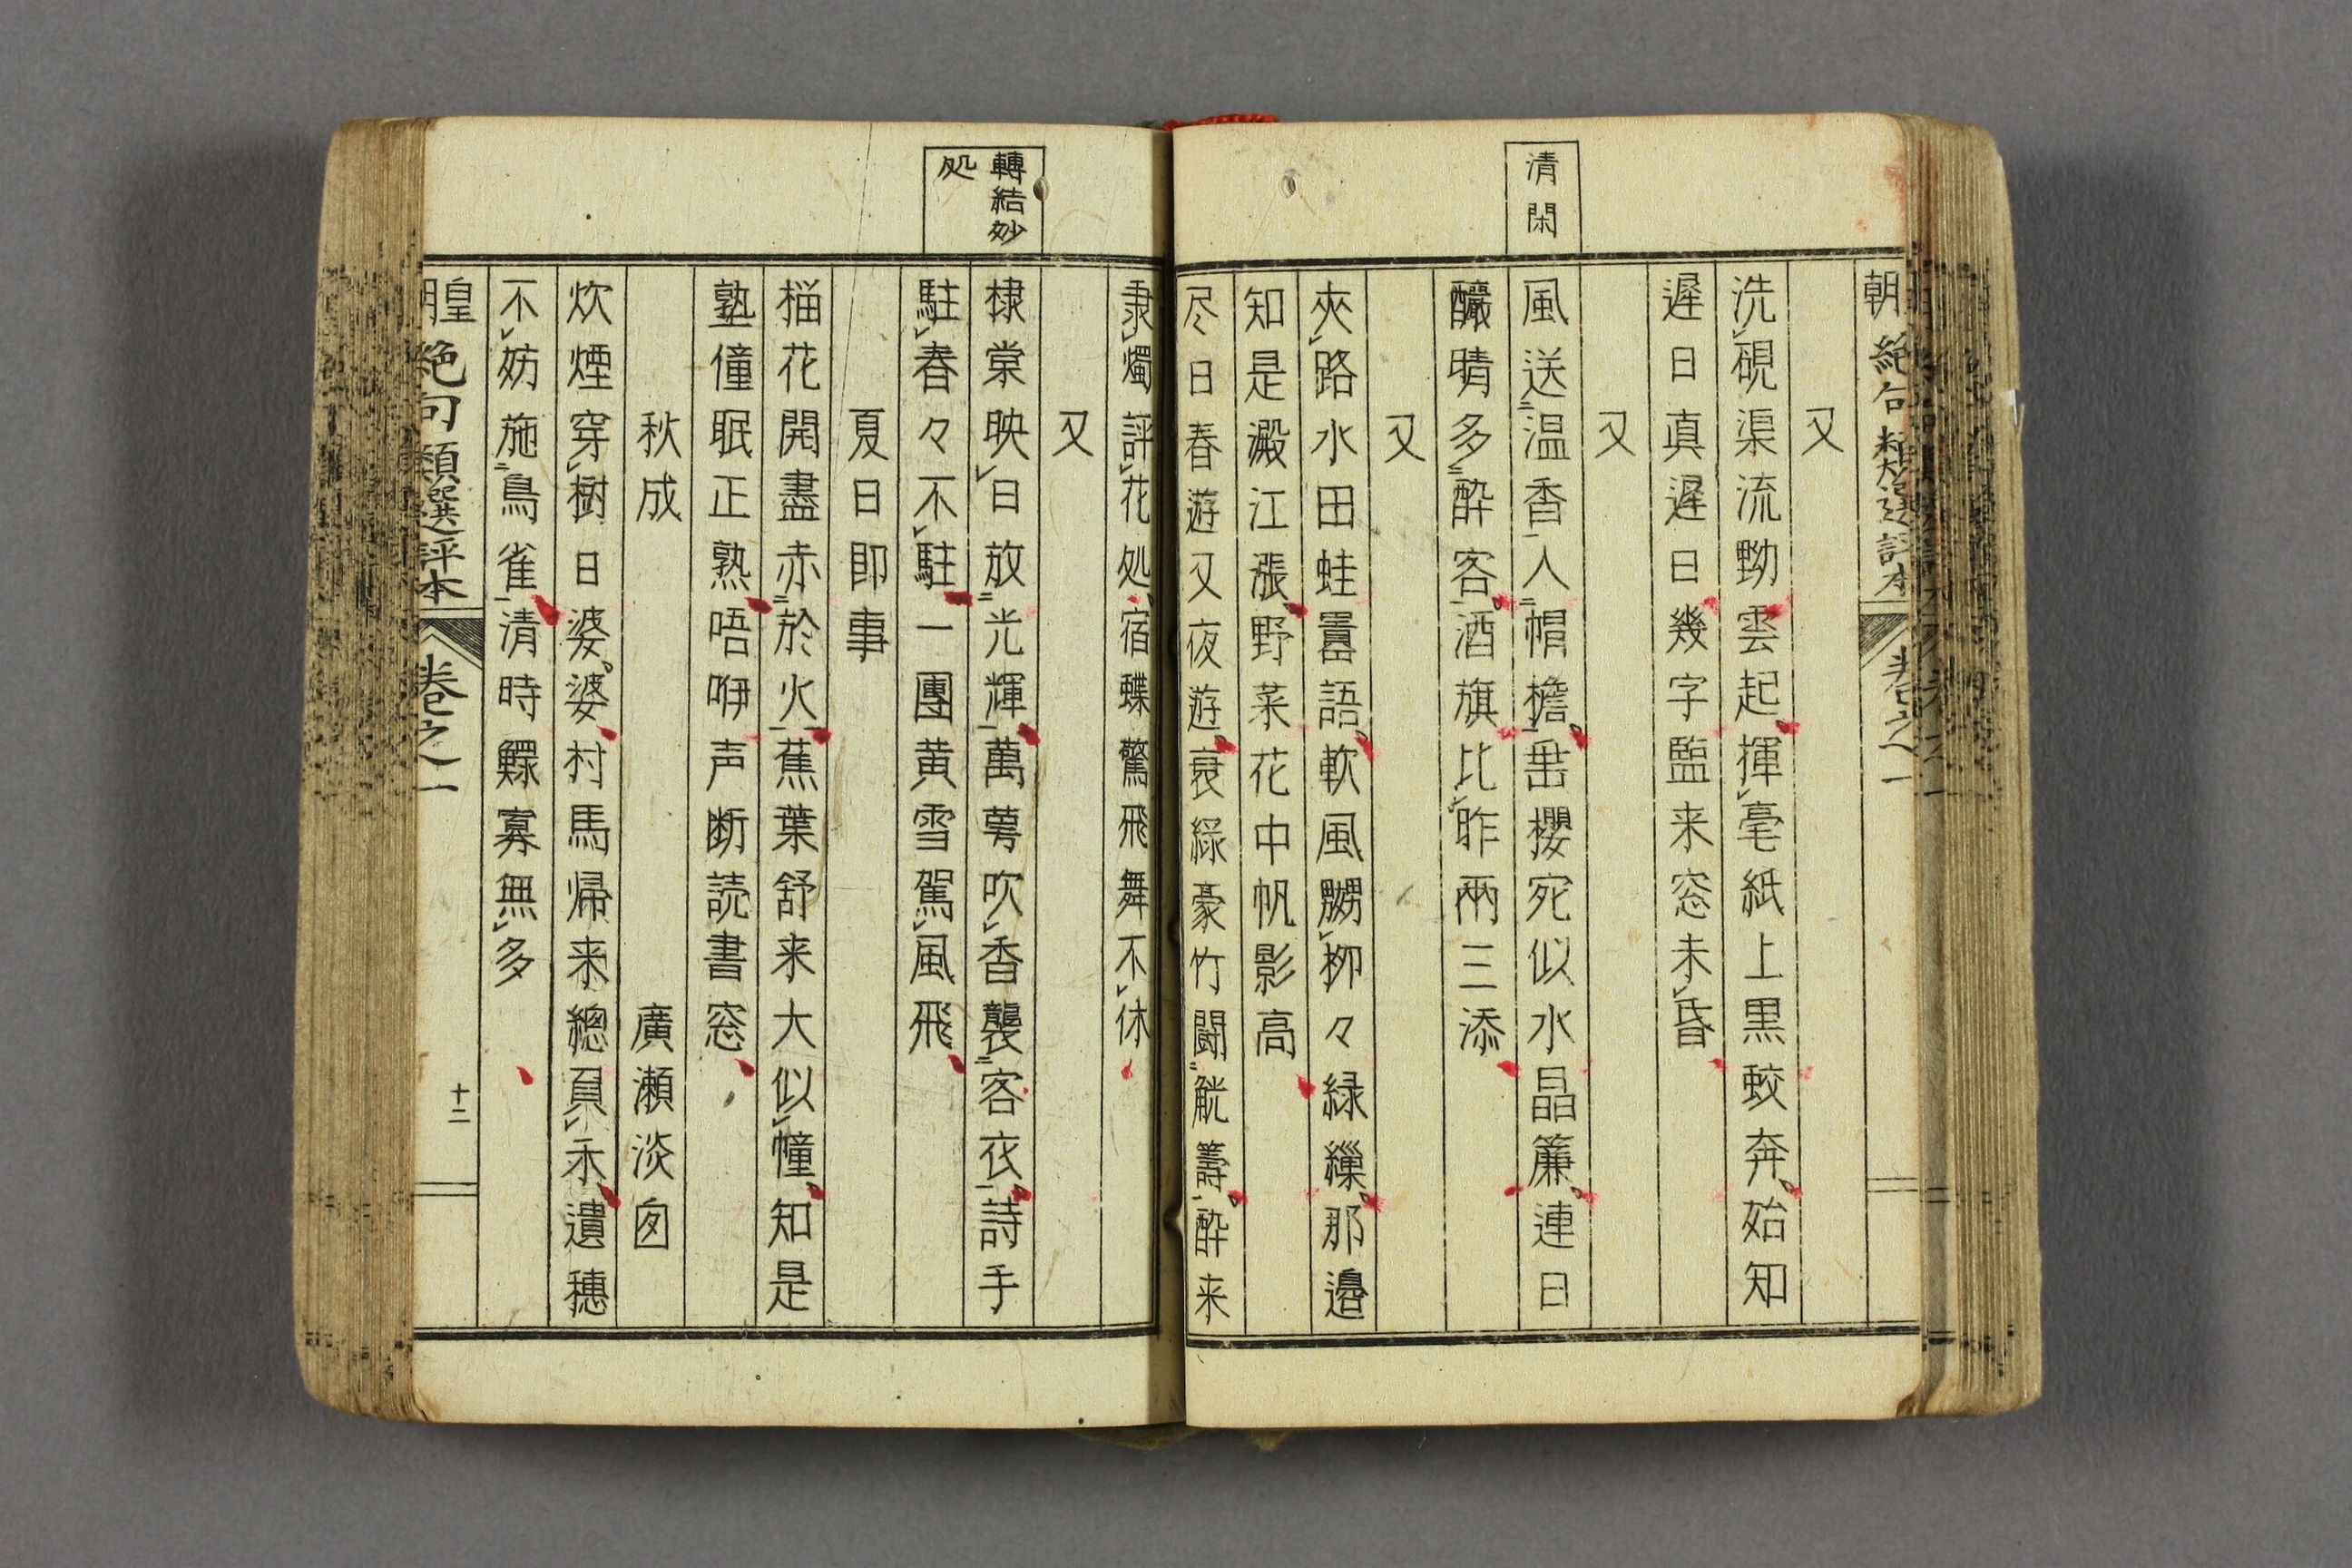 朝絶句類選評本
卷之一
清閑
又
洗硯渠流黝雲起揮毫紙上黒蛟奔始知
遅日真遅日幾字臨来窓未昏
又
風送温香人帽檐垂櫻宛似水晶簾連日
釀晴多酔客酒旗比昨両三添
又
夾路水田蛙嚚語軟風嬲柳々緑繅那邉
知是澱江漲野菜花中帆影高
尽日春遊又夜遊哀緑豪竹闘觥籌酔来
隶燭評花処宿蝶驚飛舞不休
轉結妙
処
又
棣棠映日放光輝萬蕚吹香襲客衣詩手
駐春々不駐一團黄雪駕風飛
夏日即事
榴花開盡赤於火蕉葉舒来大似幢知是
塾僮眠正熟唔咿声断読書窓
秋成
廣瀬淡囱
炊煙穿樹日婆婆村馬帰来總負禾遺穗
不妨施鳥雀清時鰥寡無多
皇朝絶句類選評本
卷之一
十二